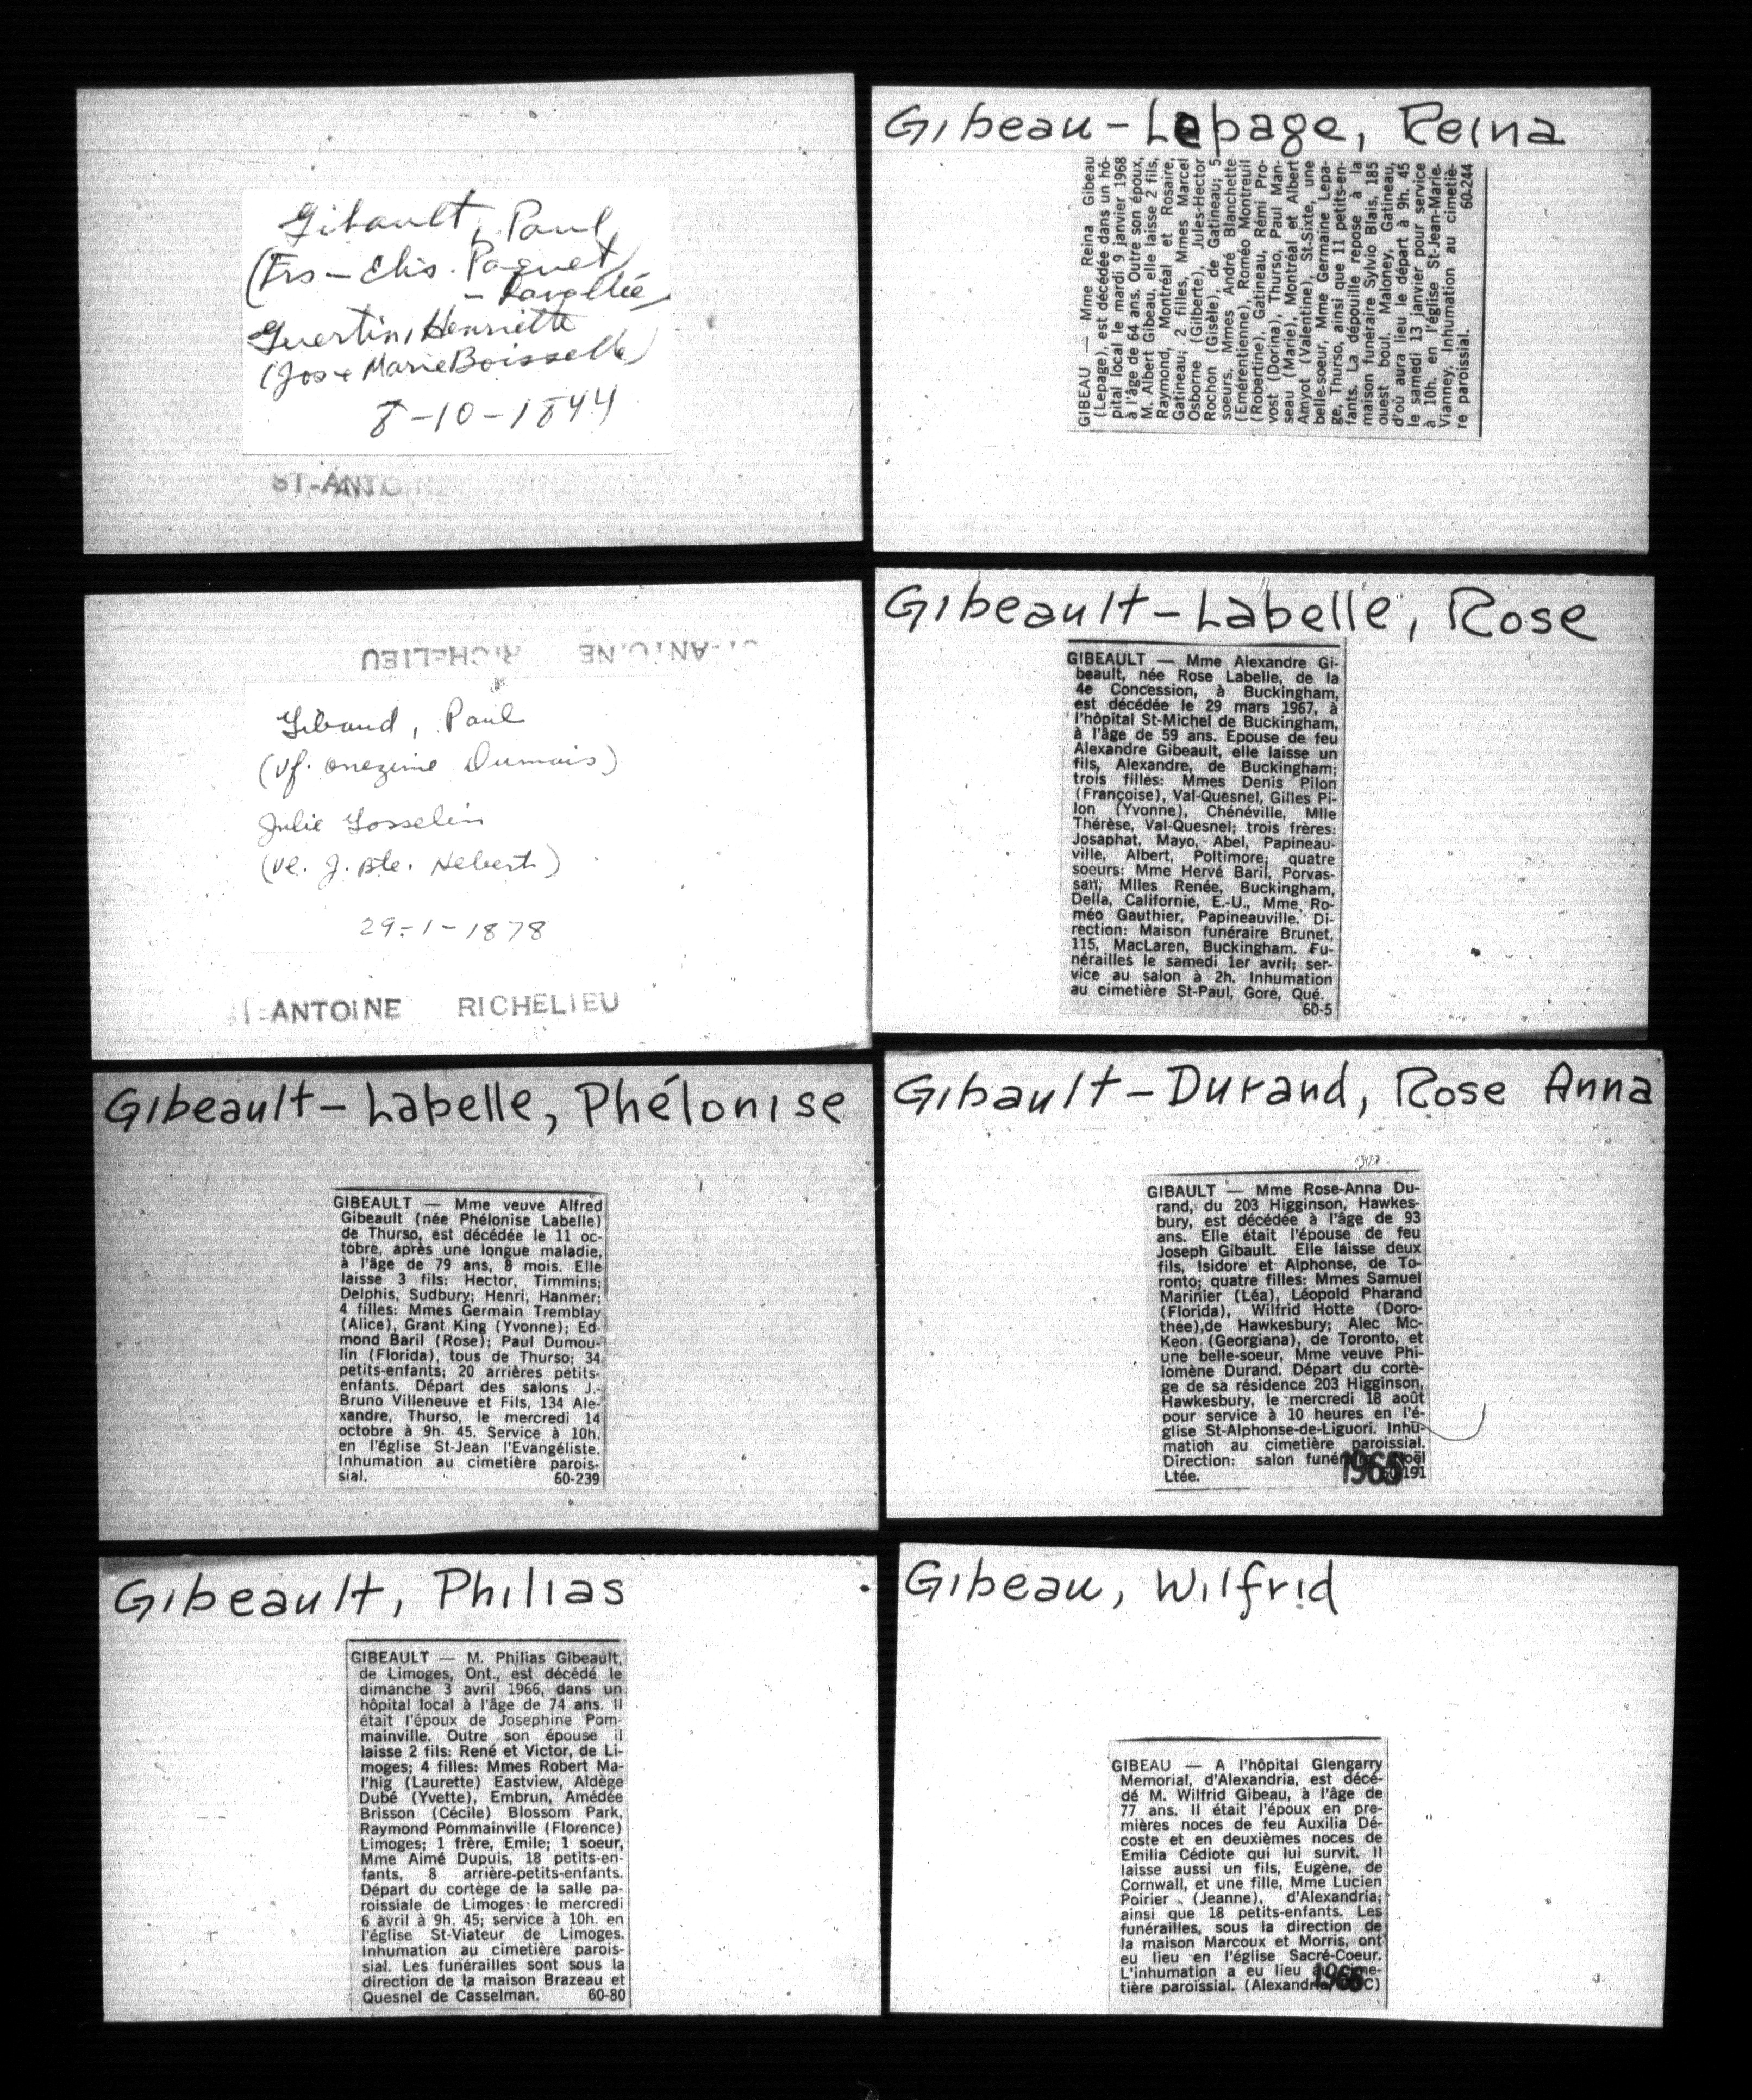 Gibault, Paul
(Frs - Elis. Paquet
- Lavallée
Guertin, Henriette
(Jos & Marie Boisselle)
8-10-1844
ST-ANTOINE
ST-ANTOINE RICHELIEU
Gibaud, Paul
(Vf. Onezime Dumais)
Julie Gosselin
(Ve. J. Bte. Hebert)
29-1-1878
ST-ANTOINE RICHELIEU
Gibeault-Labelle, Phélonise
GIBEAULT — Mme veuve Alfred
Gibeault (née Phélonise Labelle)
de Thurso, est décédée le 11 oc-
tobre, après une longue maladie,
à l'âge de 79 ans, 8 mois. Elle
laisse 3 fils: Hector, Timmins;
Delphis, Sudbury; Henri, Hanmer;
4 filles: Mmes Germain Tremblay
(Alice), Grant King (Yvonne); Ed-
mond Baril (Rose); Paul Dumou-
lin (Florida), tous de Thurso; 34
petits-enfants; 20 arrières petits-
enfants. Départ des salons J.-
Bruno Villeneuve et Fils, 134 Ale-
xandre, Thurso, le mercredi 14
octobre à 9h. 45. Service à 10h.
en l'église St-Jean l'Evangéliste.
Inhumation au cimetière parois-
sial. 60-239
Gibeault, Philias
GIBEAULT — M. Philias Gibeault,
de Limoges, Ont., est décédé le
dimanche 3 avril 1966, dans un
hôpital local à l'âge de 74 ans. Il
était l'époux de Josephine Pom-
mainville. Outre son épouse il
laisse 2 fils: René et Victor, de Li-
moges; 4 filles: Mmes Robert Ma-
l'hig (Laurette) Eastview, Aldège
Dubé (Yvette), Embrun, Amédée
Brisson (Cécile) Blossom Park,
Raymond Pommainville (Florence)
Limoges; 1 frère, Emile; 1 soeur,
Mme Aimé Dupuis, 18 petits-en-
fants, 8 arrière-petits-enfants.
Départ du cortège de la salle pa-
roissiale de Limoges le mercredi
6 avril à 9h. 45; service à 10h. en
l'église St-Viateur de Limoges.
Inhumation au cimetière parois-
sial. Les funérailles sont sous la
direction de la maison Brazeau et
Quesnel de Casselman. 60-80
Gibeau-Lepage, Reina
GIBEAU — Mme Reina Gibeau
(Lepage), est décédée dans un hô-
pital local le mardi 9 janvier 1968
à l'âge de 64 ans. Outre son époux,
M. Albert Gibeau, elle laisse 2 fils,
Raymond, Montréal et Rosaire,
Gatineau; 2 filles, Mmes Marcel
Osborne (Gilberte), Jules-Hector
Rochon (Gisèle), de Gatineau; 5
soeurs, Mmes André Blanchette
(Emérentienne), Roméo Montreuil
(Robertine), Gatineau, Rémi Pro-
vost (Dorina), Thurso, Paul Man-
seau (Marie), Montréal et Albert
Amyot (Valentine), St-Sixte, une
belle-soeur, Mme Germaine Lepa-
ge, Thurso, ainsi que 11 petits-en-
fants. La dépouille repose à la
maison funéraire Sylvio Blais, 185
ouest boul. Maloney, Gatineau,
d'où aura lieu le départ à 9h. 45
le samedi 13 janvier pour service
à 10h. en l'église St-Jean-Marie-
Vianney. Inhumation au cimetiè-
re paroissial. 60-244
Gibeault-Labelle, Rose
GIBEAULT — Mme Alexandre Gi-
beault, née Rose Labelle, de la
4e Concession, à Buckingham,
est décédée le 29 mars 1967, à
l'hôpital St-Michel de Buckingham,
à l'âge de 59 ans. Epouse de feu
Alexandre Gibeault, elle laisse un
fils, Alexandre, de Buckingham;
trois filles: Mmes Denis Pilon
(Françoise), Val-Quesnel, Gilles Pi-
lon (Yvonne), Chénéville, Mlle
Thérèse, Val-Quesnel; trois frères:
Josaphat, Mayo, Abel, Papineau-
ville, Albert, Poltimore; quatre
soeurs: Mme Hervé Baril, Porvas-
san, Mlles Renée, Buckingham,
Della, Californie, E.-U., Mme Ro-
méo Gauthier, Papineauville. Di-
rection: Maison funéraire Brunet,
115, MacLaren, Buckingham. Fu-
nérailles le samedi 1er avril; ser-
vice au salon à 2h. Inhumation
au cimetière St-Paul, Gore, Qué.
60-5
Gibault-Durand, Rose Anna
GIBAULT — Mme Rose-Anna Du-
rand, du 203 Higginson, Hawkes-
bury, est décédée à l'âge de 93
ans. Elle était l'épouse de feu
Joseph Gibault. Elle laisse deux
fils, Isidore et Alphonse, de To-
ronto; quatre filles: Mmes Samuel
Marinier (Léa), Léopold Pharand
(Florida), Wilfrid Hotte (Doro-
thée),de Hawkesbury; Alec Mc-
Keon (Georgiana), de Toronto, et
une belle-soeur, Mme veuve Phi-
lomène Durand. Départ du cortè-
ge de sa résidence 203 Higginson,
Hawkesbury, le mercredi 18 août
pour service à 10 heures en l'é-
glise St-Alphonse-de-Liguori. Inhu-
mation au cimetière paroissial.
Direction: salon funéraire Noël
Ltée. 1965 60-191
Gibeau, Wilfrid
GIBEAU — A l'hôpital Glengarry
Memorial, d'Alexandria, est décé-
dé M. Wilfrid Gibeau, à l'âge de
77 ans. Il était l'époux en pre-
mières noces de feu Auxilia Dé-
coste et en deuxièmes noces de
Emilia Cédiote qui lui survit. Il
laisse aussi un fils, Eugène, de
Cornwall, et une fille, Mme Lucien
Poirier (Jeanne), d'Alexandria;
ainsi que 18 petits-enfants. Les
funérailles, sous la direction de
la maison Marcoux et Morris, ont
eu lieu en l'église Sacré-Coeur.
L'inhumation a eu lieu au cime-
tière paroissial. (Alexandria 1966 C)